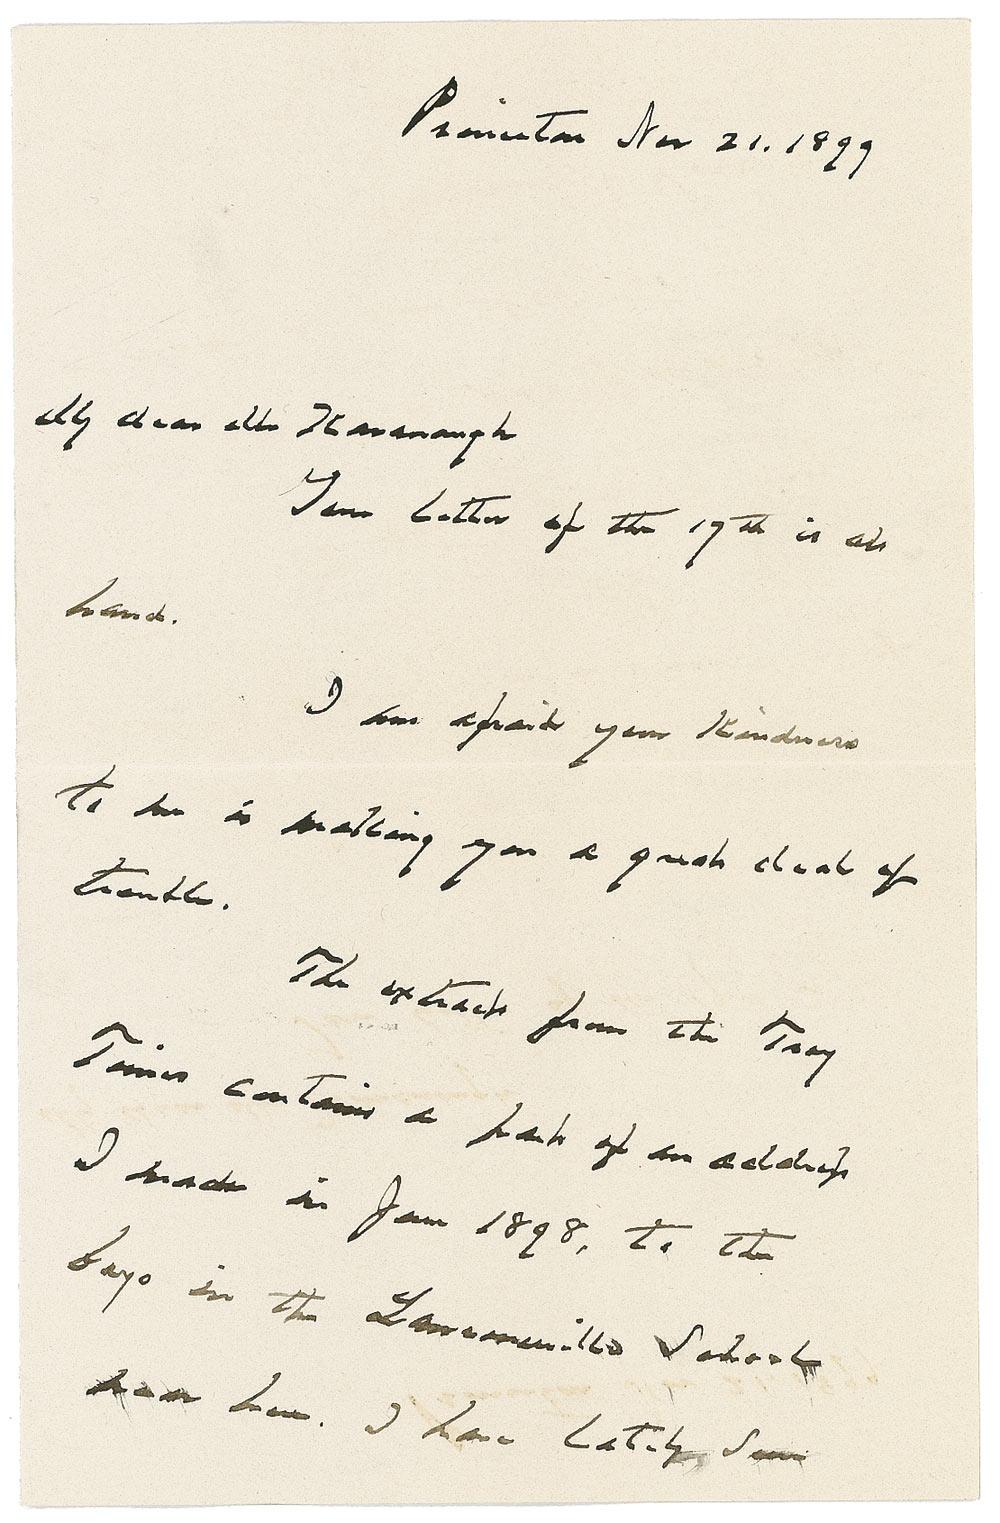 Princeton Nov 21. 1899
My dear Mr Kavanaugh
Your letter of the 19th is at
hand.
I am afraid your kindness
to me is making you a great deal of
trouble.
The extract from the Troy
Times contains a part of an address
I made in Jan 1898, to the
boys in the Lawrenceville School
near here. I have lately seen